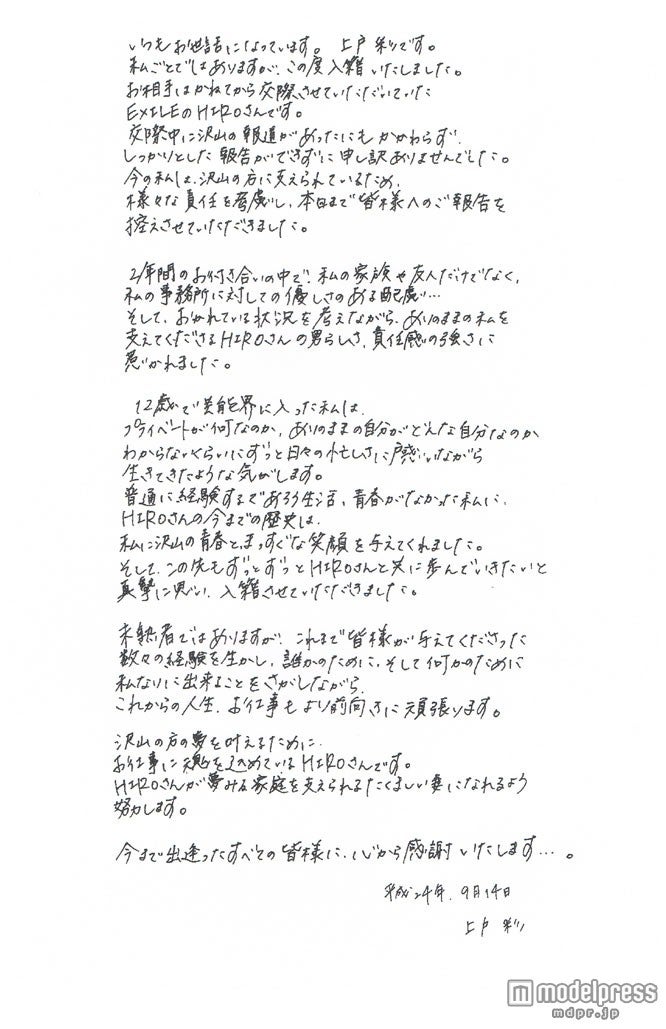 いつもお世話になっています。上戸彩です。
私ごとではありますが、この度入籍いたしました。
お相手はかねてから交際させていただいていた
EXILEのHIROさんです。
交際中に沢山の報道があったにもかかわらず、
しっかりとした報告ができずに申し訳ありませんでした。
今の私は、沢山の方に支えられているため、
様々な責任を考慮し、本日まで皆様へのご報告を
控えさせていただきました。
2年間のお付き合いの中で、私の家族や友人だけでなく、
私の事務所に対しての優しさのある配慮…
そして、おかれている状況を考えながら、ありのままの私を
支えてくださるHIROさんの男らしさ、責任感の強さに
惹かれました。
12歳で芸能界に入った私は、
プライベートが何なのか、ありのままの自分がどんな自分なのか
わからないくらいにずっと日々の忙しさに戸惑いながら
生きてきたような気がします。
普通に経験するであろう生活、青春がなかった私に、
HIROさんの今までの歴史は、
私に沢山の青春と、まっすぐな笑顔を与えてくれました。
そして、この先もずっとずっとHIROさんと共に歩んでいきたいと
真摯に思い、入籍させていただきました。
未熟者ではありますが、これまで皆様が与えてくださった
数々の経験を生かし、誰かのために、そして何かのために
私なりに出来ることをさがしながら、
これからの人生、お仕事もより前向きに頑張ります。
沢山の方の夢を叶えるために、
お仕事に魂を込めているHIROさんです。
HIROさんが夢みる家庭を支えられるたくましい妻になれるよう
努力します。
今まで出逢ったすべての皆様に、心から感謝いたします…。
平成24年、9月14日
上戸 彩
modelpress
mdpr.jp